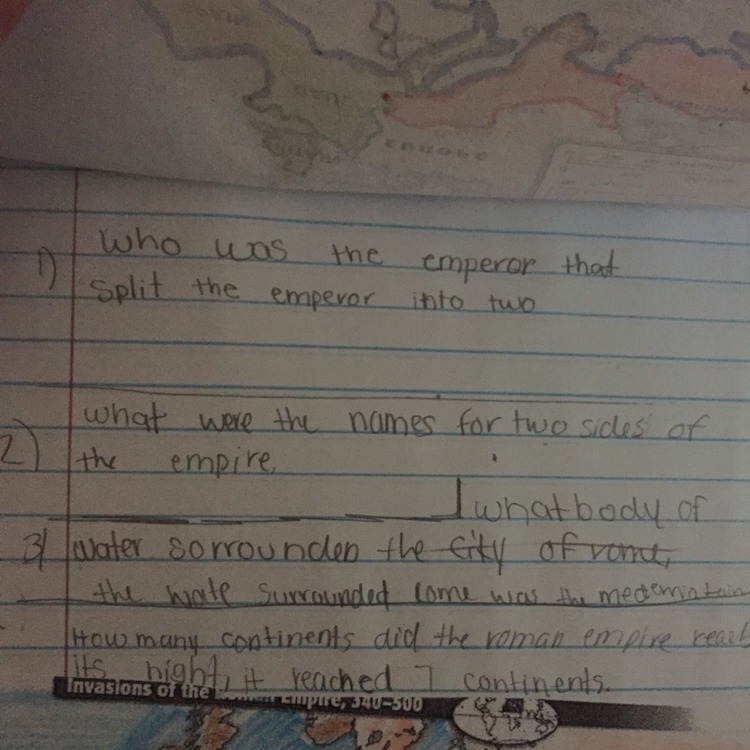 1) who was the emperor that
split the emperor into two
2) what were the names for two sides of
the empire,
what body of
3) water sorrounden the city of rome,
the wate surrounded come was the
How many continents did the roman empire reach
its night, it reached 7 continents.
Invasions of the Roman Empire, 340–500